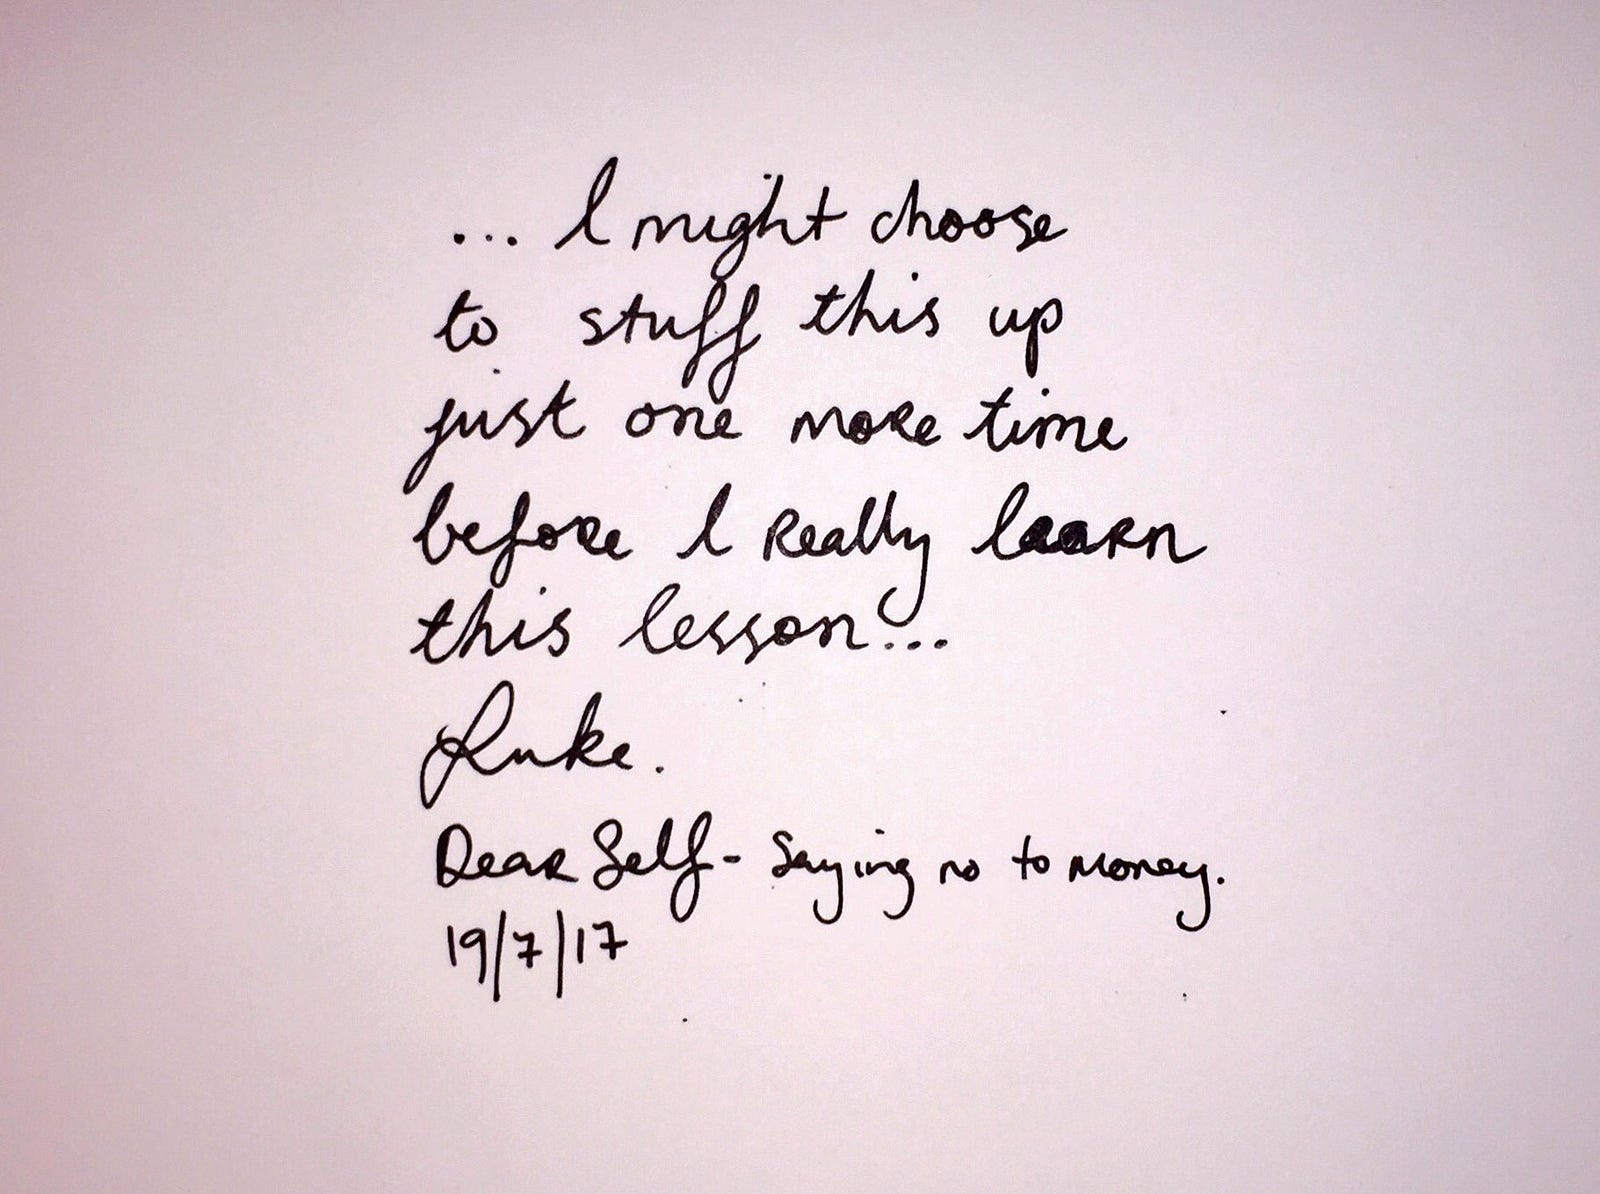 ... I might choose
to stuff this up
just one more time
before I really learn
this lesson...
Luke.
Dear Self - Saying no to money.
19/7/17